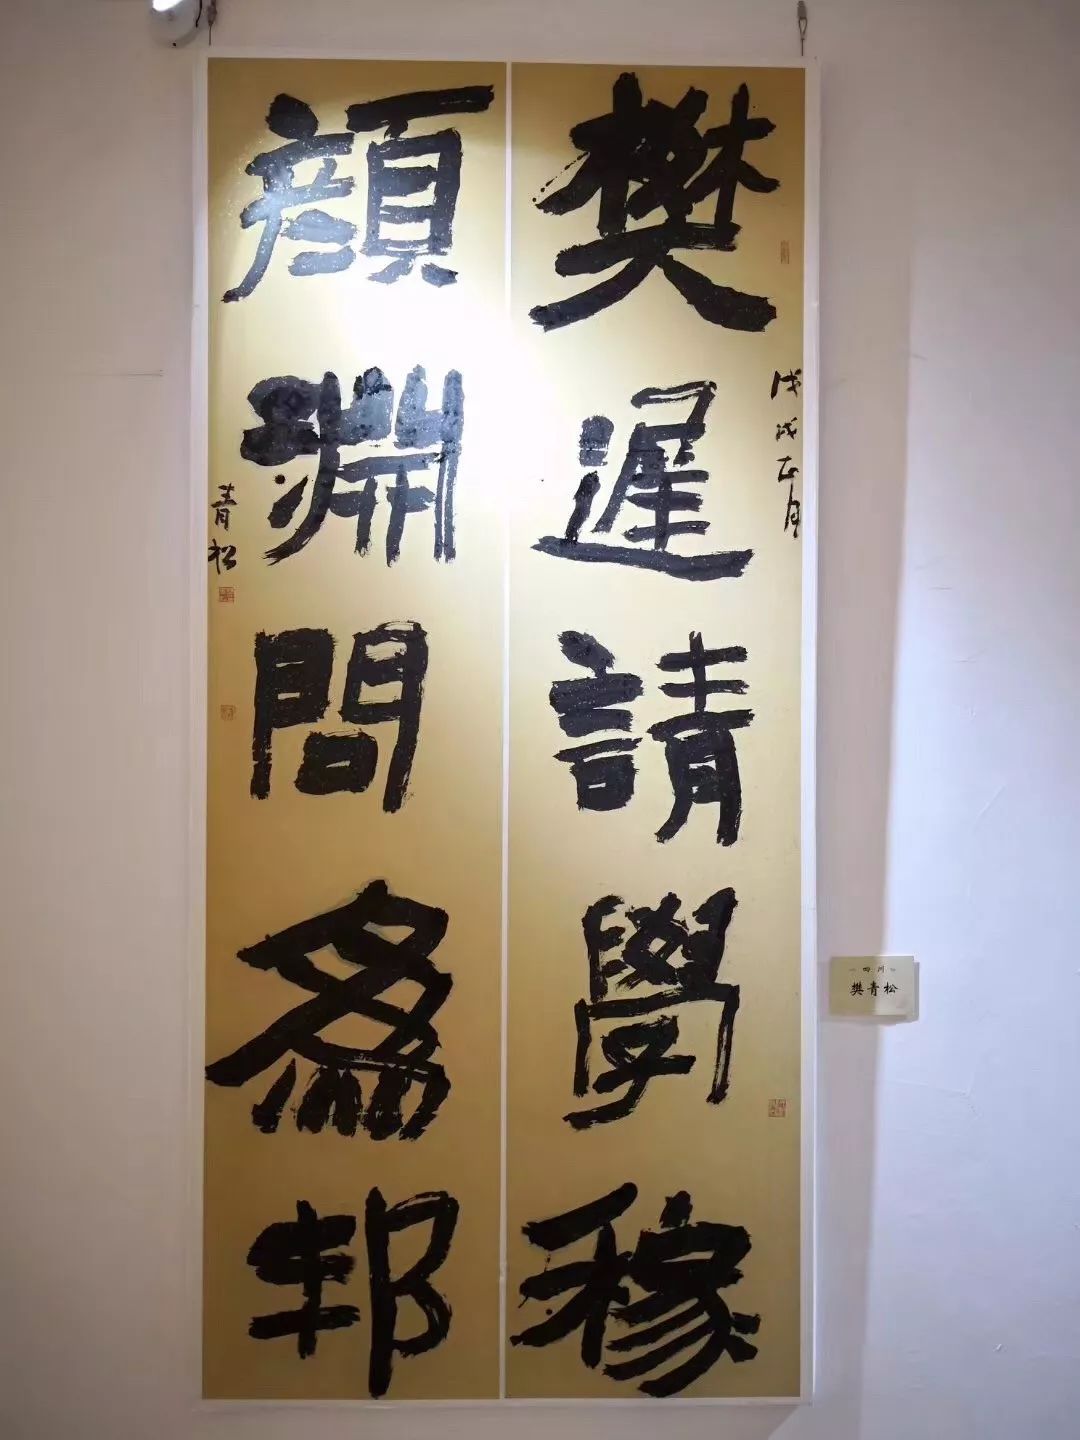 樊遲請學稼
戊戌正月
顔淵問爲邦
青松
四川
樊青松